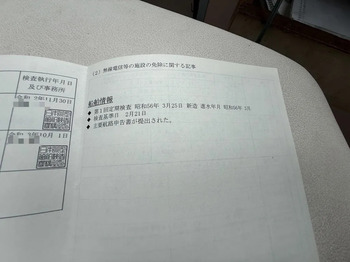 検査執行年月日
及び事務所
11月30日
10月 1日
(5) 無線電信等の施設の免除に関する記事
船舶情報
◆ 第1回定期検査 昭和56年 3月25日 新造 進水年月 昭和56年 2月
◆ 検査基準日 2月21日
◆ 主要航路申告書が提出された。